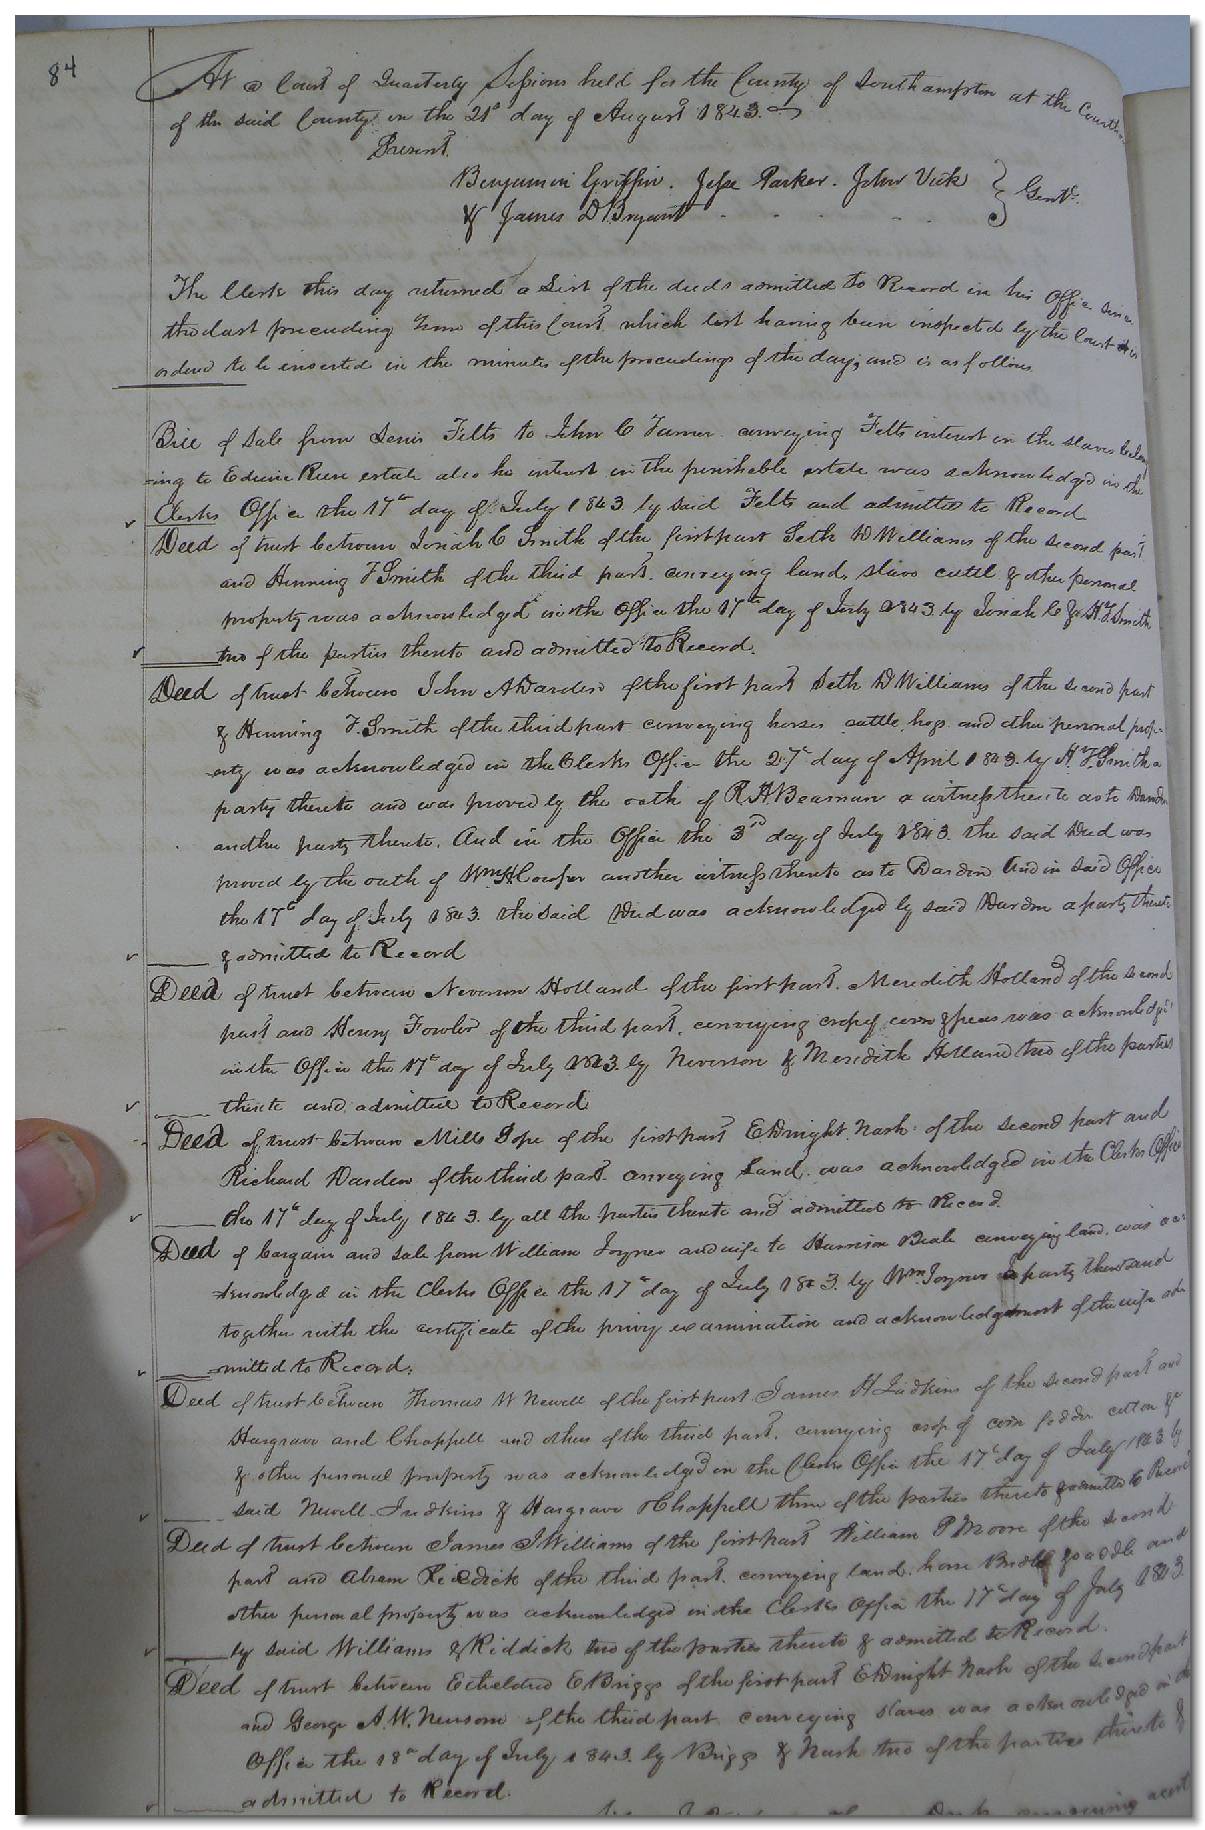 84
At a Court of Quarterly Sessions held for the County of Southampton at the Courth
of the said County on the 21st day of August 1843.
Present
Benjamin Griffin. Jesse Parker. John Vick
& James D Bryant Gent.
The Clerk this day returned a List of the deeds admitted to Record in his Office since
the last preceeding Term of this Court, which list having been inspected by the Court is
ordered to be inserted in the minutes of the proceedings of the day, and is as follows
Bill of Sale from Lewis Felts to John C Turner conveying Felts interest in the slaves belon
-ing to Edwin Reese estate also his interest in the perishable estate was acknowledged in the
Clerks Office the 17th day of July 1843 by said Felts and admitted to Record
Deed of trust between Josiah C Smith of the first part Seth D Williams of the second part
and Henning F Smith of the third part. conveying land, slaves cattle & other personal
property was acknowledged in the Office the 17th day of July 1843 by Josiah C & H F Smith
two of the parties thereto and admitted to Record.
Deed of trust between John A Darden of the first part Seth D Williams of the second part
& Henning F. Smith of the third part conveying horses cattle, hogs and other personal prop-
erty was acknowledged in the Clerks Office the 27th day of April 1843. by H. F. Smith a
party thereto and was proved by the oath of R H Beaman a witness thereto as to Darden
another party thereto. And in the Office the 3rd day of July 1843 the said Deed was
proved by the oath of Wm H Cooper another witness thereto as to Darden And in said Office
the 17th day of July 1843. the said Deed was acknowledged by said Darden a party thereto
& admitted to Record
Deed of trust between Neverson Holland of the first part. Meredith Holland of the second
part and Henry Fowler of the third part, conveying crop of corn & peas was acknowledged
in the Office the 17th day of July 1843. by Neverson & Meredith Holland two of the parties
thereto and admitted to Record
Deed of trust between Mills Pope of the first part E Dwight Nash of the second part and
Richard Darden of the third part. conveying Land. was acknowledged in the Clerks Office
the 17th day of July 1843. by all the parties thereto and admitted to Record.
Deed of bargain and sale from William Joyner and wife to Harrison Beale conveying land, was ac-
-knowledged in the Clerks Office the 17th day of July 1843. by Wm Joyner a party thereto and
together with the certificate of the privy examination and acknowledgment of the wife ad-
mitted to Record.
Deed of trust between Thomas W Newell of the first part James H Judkins of the second part and
Hargrave and Chappell and others of the third part, conveying crop of corn fodder cotton &c
& other personal property was acknowledged in the Clerks Office the 17th day of July 1843 by
said Newell. Judkins & Hargrave & Chappell three of the parties thereto & admitted to Record
Deed of trust between James J Williams of the first part William P Moore of the second
part and Abram Riddick of the third part. conveying land, horse Bridle & saddle and
other personal property was acknowledged in the Clerks Office the 17th day of July 1843.
by said Williams & Riddick two of the parties thereto & admitted to Record.
Deed of trust between Etheldred E Briggs of the first part E Dwight Nash of the second part
and George A. W. Newsom of the third part conveying slaves was acknowledged in the
Office the 18th day of July 1843. by Briggs & Nash two of the parties thereto &
admitted to Record.